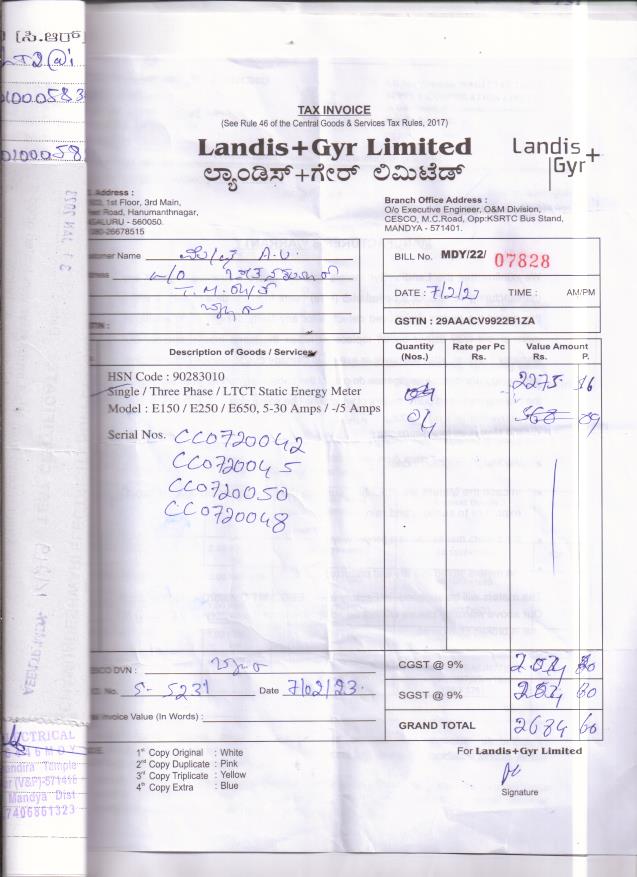 [ಸಿ.ಆರ್]
01000583
0100058
31 JAN 2023
TAX INVOICE
(See Rule 46 of the Central Goods & Services Tax Rules, 2017)
Landis+Gyr Limited
ಲ್ಯಾಂಡಿಸ್+ಗೇರ್ ಲಿಮಿಟೆಡ್
Landis+
Gyr
Address :
1st Floor, 3rd Main,
Road, Hanumanthnagar,
560050.
26678515
Branch Office Address :
O/o Executive Engineer, O&M Division,
CESCO, M.C.Road, Opp:KSRTC Bus Stand,
MANDYA - 571401.
Name
BILL No. MDY/22/ 07828
DATE : 7/2/23 TIME : AM/PM
GSTIN : 29AAACV9922B1ZA
Description of Goods / Services Quantity (Nos.) Rate per Pc Rs. Value Amount Rs. P.
HSN Code : 90283010 2275 16
Single / Three Phase / LTCT Static Energy Meter
Model : E150 / E250 / E650, 5-30 Amps / -/5 Amps 04
Serial Nos. CC0720042
CC0720045
CC0720050
CC0720048
DVN :
CGST @ 9%
No. S-5231 Date 7/02/23
SGST @ 9%
Invoice Value (In Words) :
GRAND TOTAL 2684 60
1st Copy Original : White
2nd Copy Duplicate : Pink
3rd Copy Triplicate : Yellow
4th Copy Extra : Blue
For Landis+Gyr Limited
Signature
CTRICAL
Temple
(V&P)-571416
Mandya Dist
7406861323